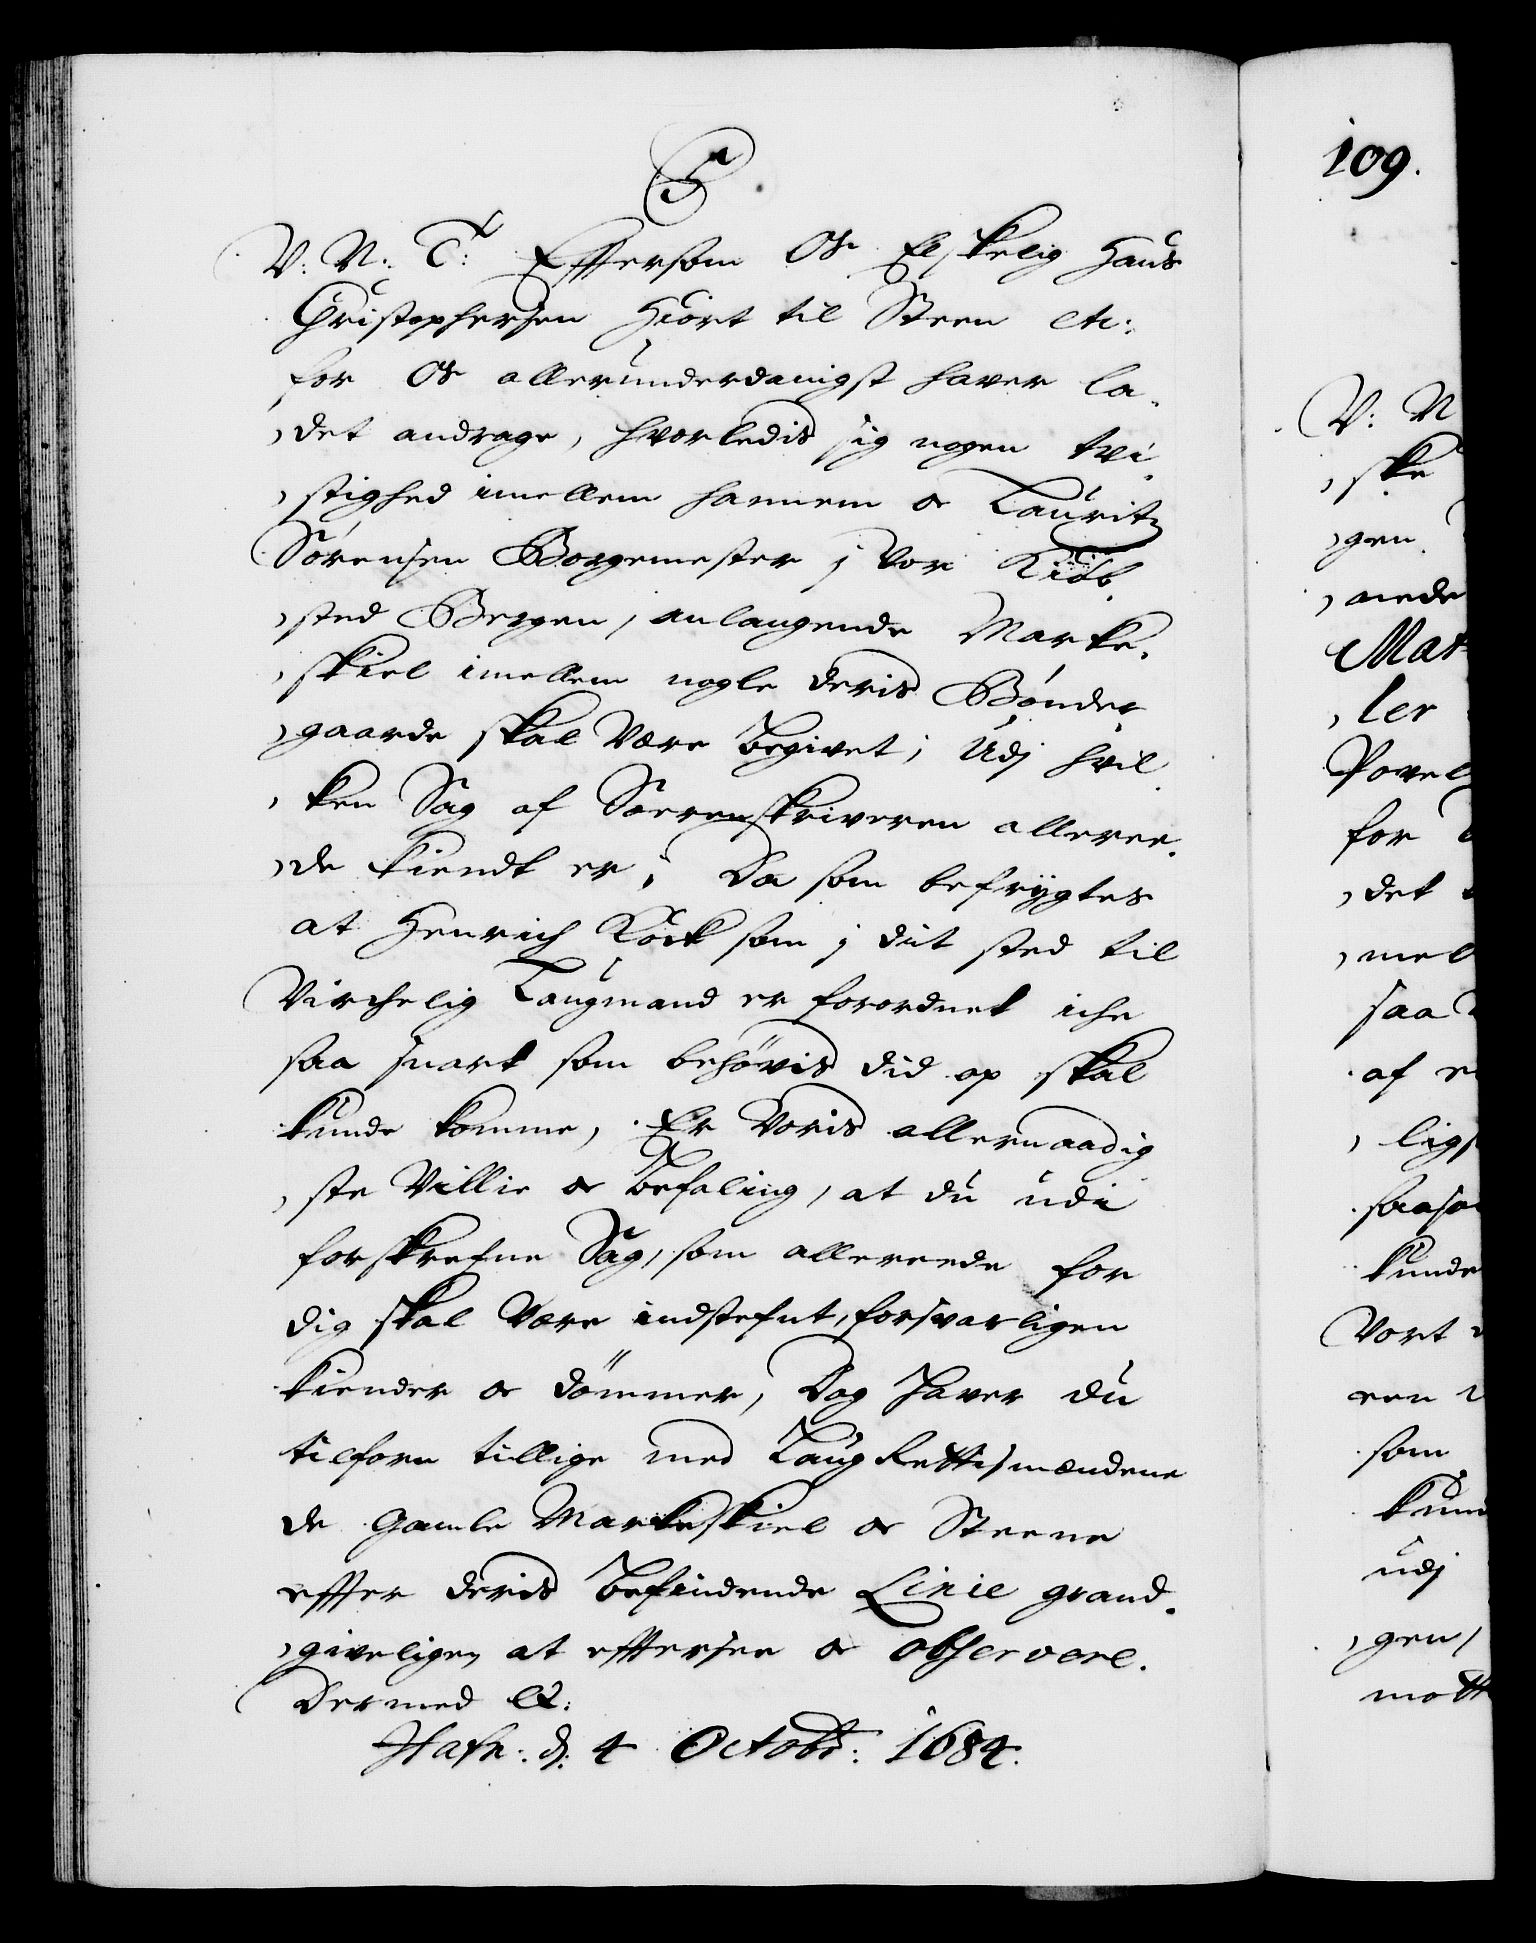 C5.
V: N: T: Effersom Os Elskelig Hans
Christophersen Hiort til Steen etc:
for Os allerunderdanigst haver la-
det andrage, hvorledis sig nogen tvi-
stighed imellem hannem oc Lauritz
Sørensen Borgemester j Vor Kiøb-
sted Bergen, anlangende Marke-
skiel imellem nogle deris Bønder
gaarde skal være begivet; Udj hvil
ken Sag af Sorenskriveren alleree-
de kiendt er; Da som befrygtes
at Henrich Kock som j dit sted til
Virchelig Laugmand er forordnet iche
saa snart som behøvis did op skal
kunde komme, Er Voris allernaadig
ste Villie oc befaling, at du udi
forskrefne Sag, som allereede for
dig skal være indstefnt, forsvarligen
kiender oc dömmer, Dog haver du
tilforn tillige med LaugRettismændene
de gamle Markeskiel oc Steene
effter deris befindende Linie grand-
giveligen at eftersee oc observere.
Dermed etc:
Hafn: d: 4 Octobr: 1684.
109.
V: N
ske
gen
mede
Mat
ler
Povel
for
det
mel
saa
af
lig
saasom
kunde
Vort
een
som
kund
udj
gen,
mott